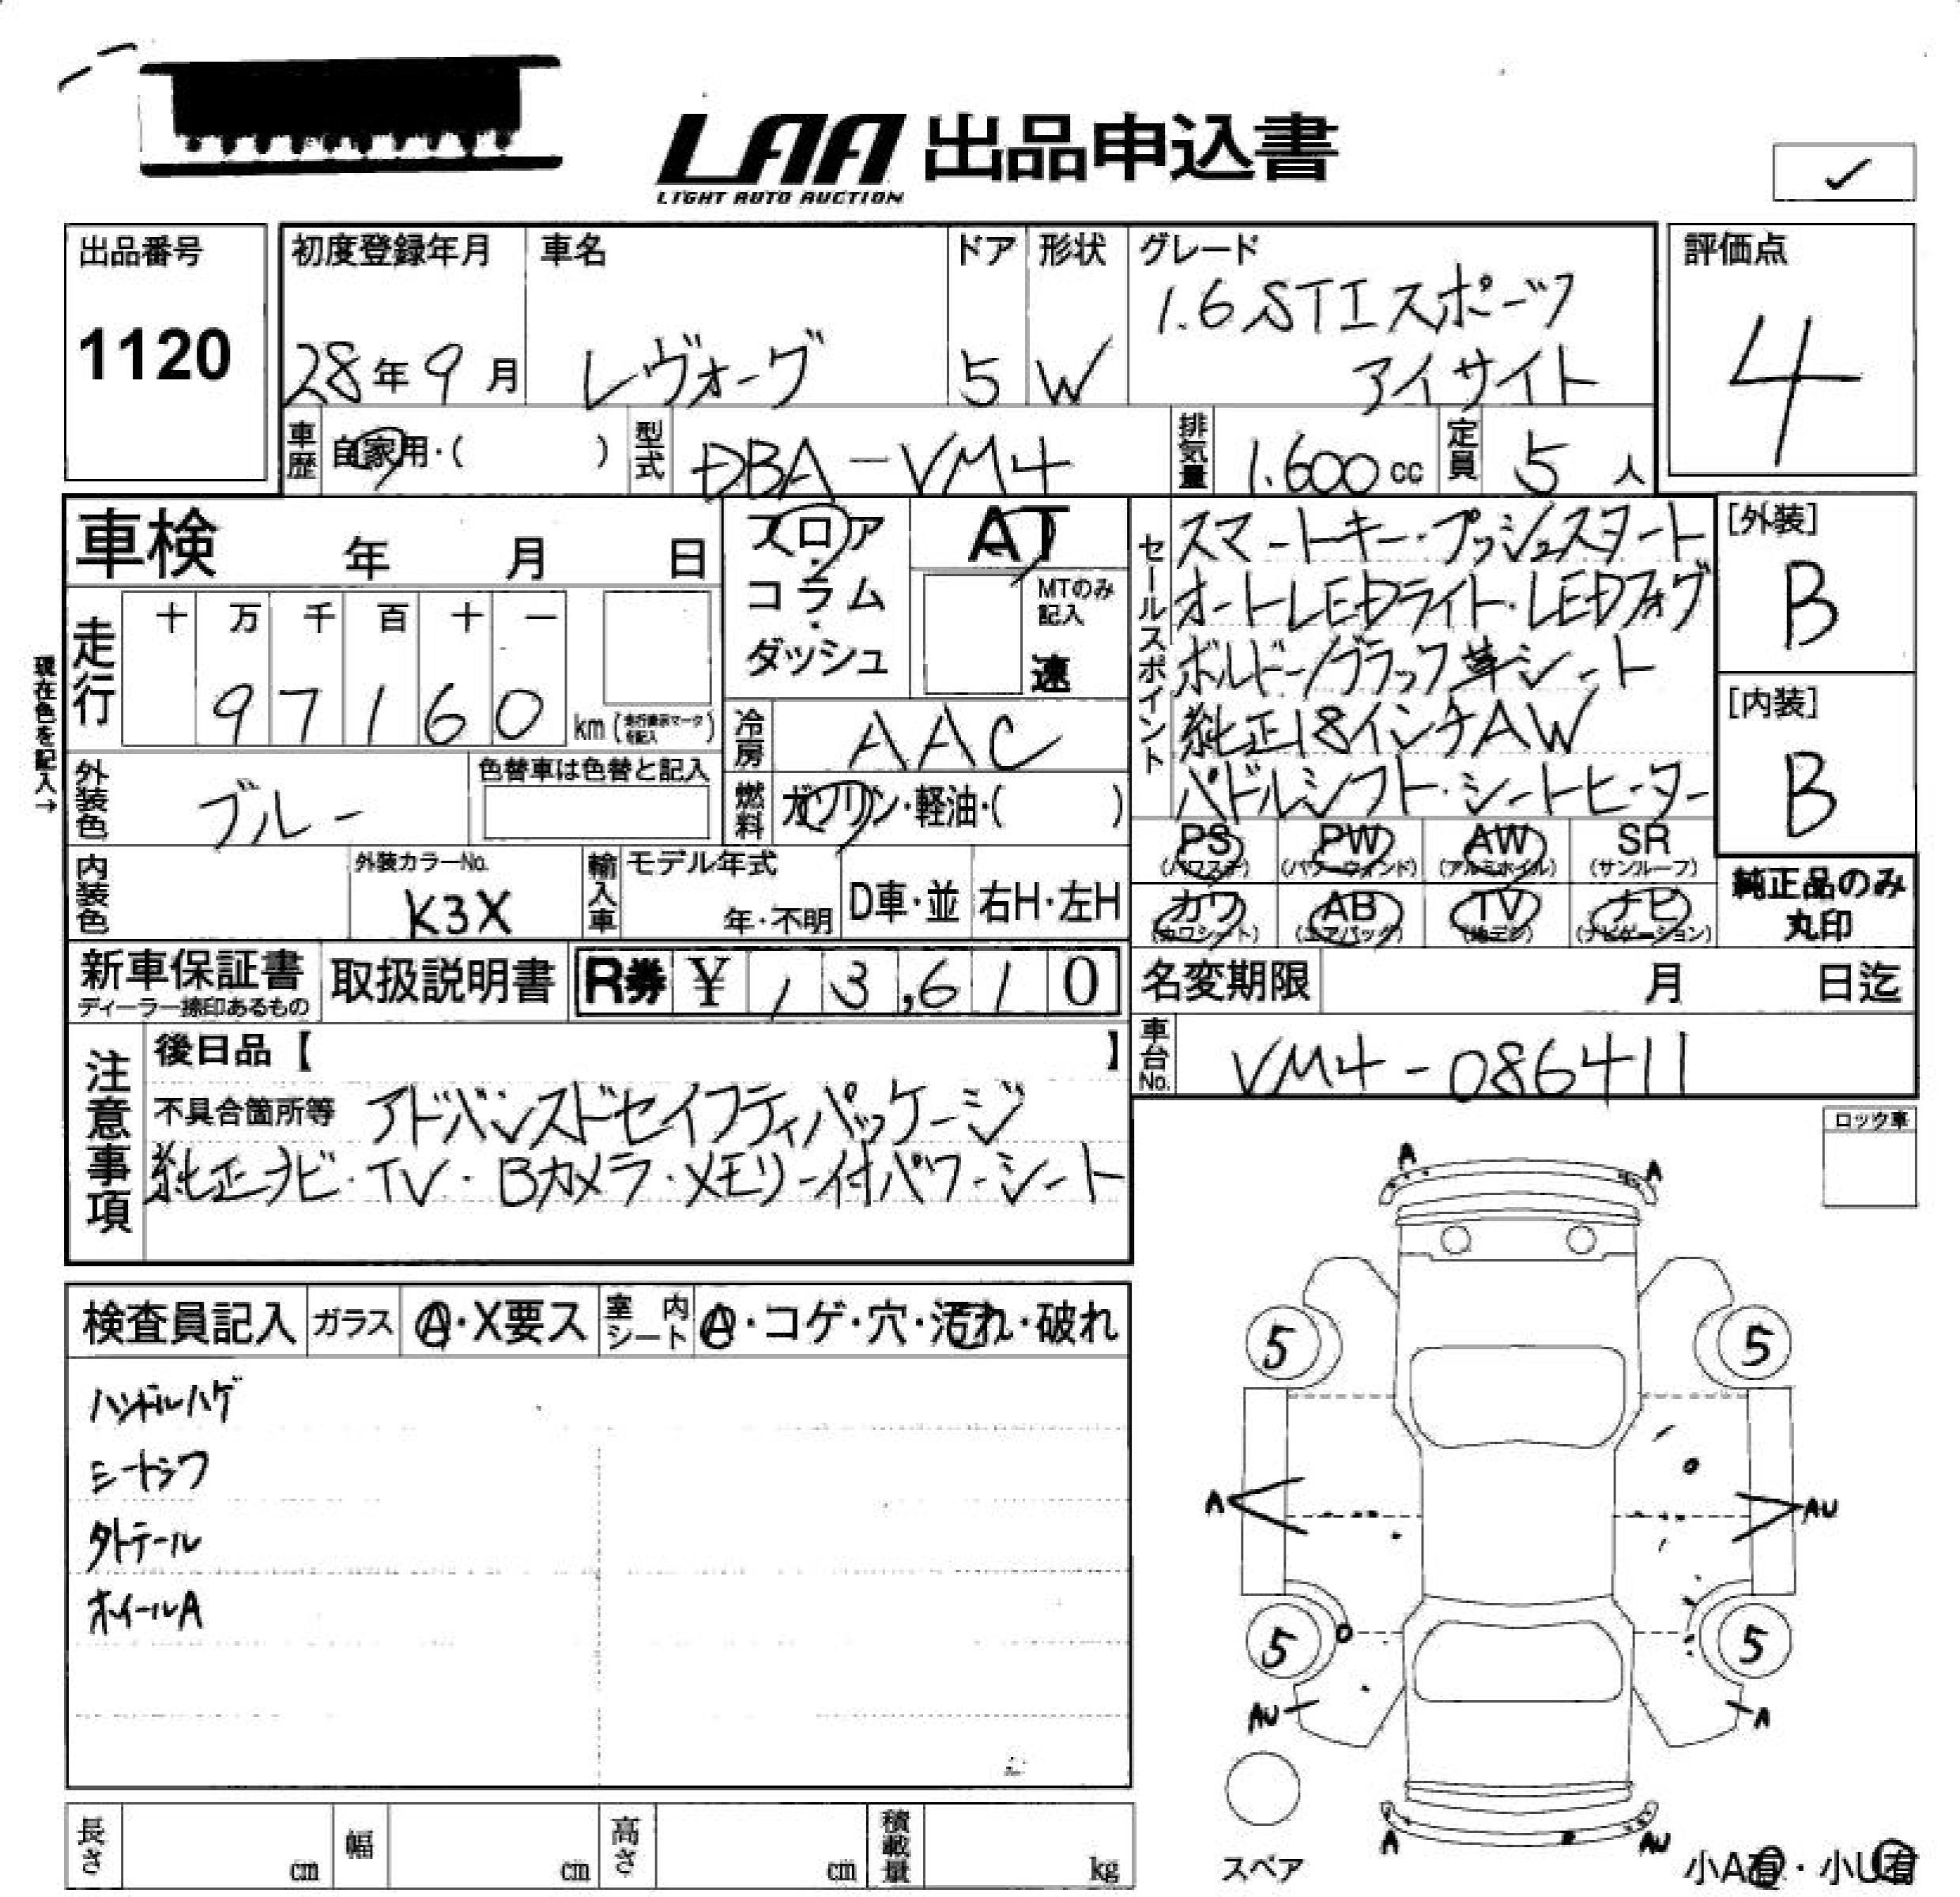 LAA 出品申込書
LIGHT AUTO AUCTION
✓
出品番号
1120
初度登録年月
28年9月
車名
レヴォーグ
ドア
5
形状
W
グレード
1.6 STIスポーツ
アイサイト
評価点
4
車歴
自家用・( )
型式
DBA-VM4
排気量
1.600 cc
定員
5 人
車検 年 月 日
フロア
コラム
ダッシュ
AT
MTのみ
記入
速
セールスポイント
スマートキー・プッシュスタート
オートLEDライト・LEDフォグ
ボルドー/ブラック革シート
純正18インチAW
パドルシフト・シートヒーター
[外装]
B
[内装]
B
現在色を記入→
走行
十 万 千 百 十 一
9 7 1 6 0 km (走行表示マークを記入)
冷房
AAC
外装色
ブルー
色替車は色替と記入
燃料
ガソリン・軽油・( )
PS
(パワステ)
PW
(パワーウィンド)
AW
(アルミホイル)
SR
(サンルーフ)
カワ
(カワシート)
AB
(エアバック)
TV
(地デジ)
ナビ
(ナビゲーション)
純正品のみ
丸印
内装色
外装カラーNo.
K3X
輸入車
モデル年式
年・不明
D車・並
右H・左H
新車保証書
ディーラー捺印あるもの
取扱説明書
R券 ¥ 13,610
名変期限 月 日迄
車台No.
VM4-086411
注意事項
後日品【 】
不具合箇所等 アドバンスドセイフティパッケージ
純正ナビ・TV・Bカメラ・メモリー付パワーシート
ロック車
検査員記入
ガラス
A・X要ス
室内
シート
A・コゲ・穴・汚れ・破れ
ハンドルハゲ
シートシワ
外テール
ホイールA
A
A
5
5
A
AU
5
5
AU
A
A
AU
スペア
小A有・小U有
長さ cm
幅 cm
高さ cm
積載量 kg